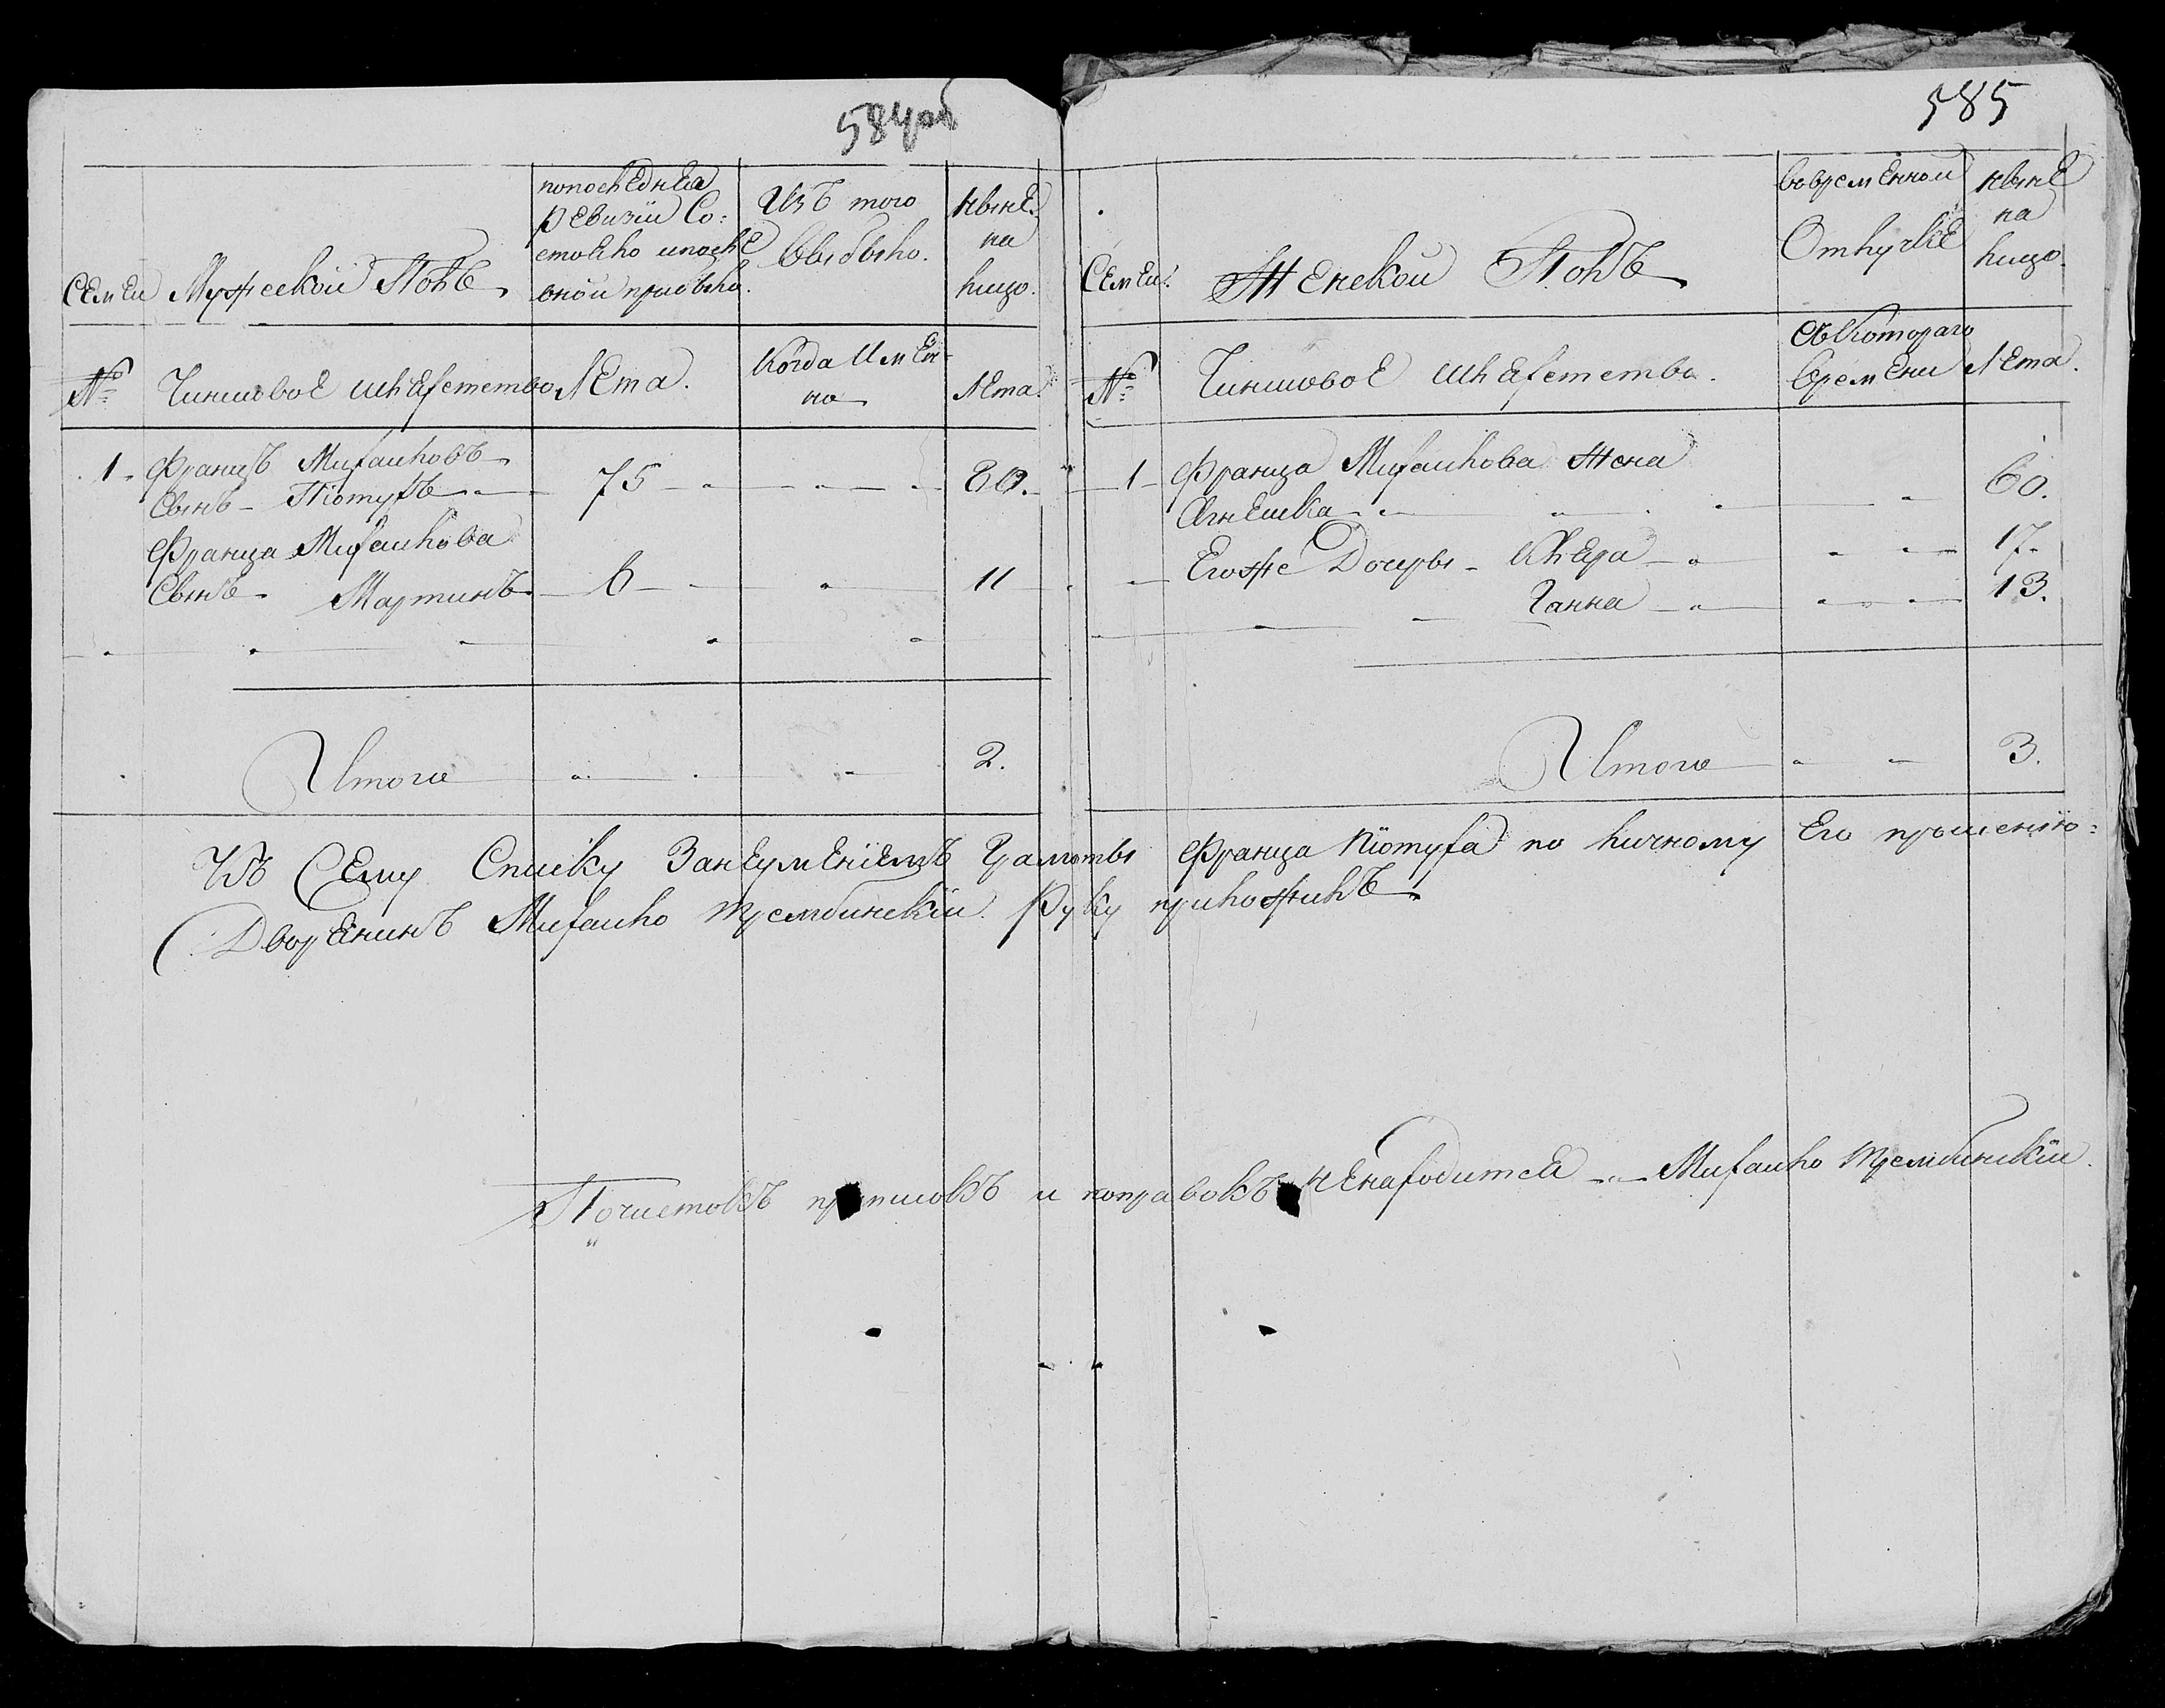 584об
Семьи
Мужеской Полъ
попоследнеи
ревизіи Со:
стояло ипосле
оной прибыло.
Изъ того
выбыло.
ныне
на
лицо.
№
Чиншовое шляхетство
Лета.
когда Имен-
но
Лета.
1. Францъ Михаиловъ
Сынъ - Піотухъ 75 80.
Франца Михаилова
Сынъ - Мартинъ 6 11
Итого 2.
585
Семьи
Женской Полъ
вовременной
Отлучке
ныне
на
лицо.
№
Чиншовое шляхетство.
Съкотораго
времени
Лета.
1 Франца Михаилова Жена
Агнешка 60.
Егоже Дочеры - 17.
Ганна 13.
Итого 3.
Къ Сему Списку Занеуменіемъ Грамоты Франца Піотуха по личному Его прошенію:
Дворенинъ Михаило Трембинскіи Руку приложилъ
Почистокъ приписокъ и поправокъ ненаходитса Михаило Трембинскіи.